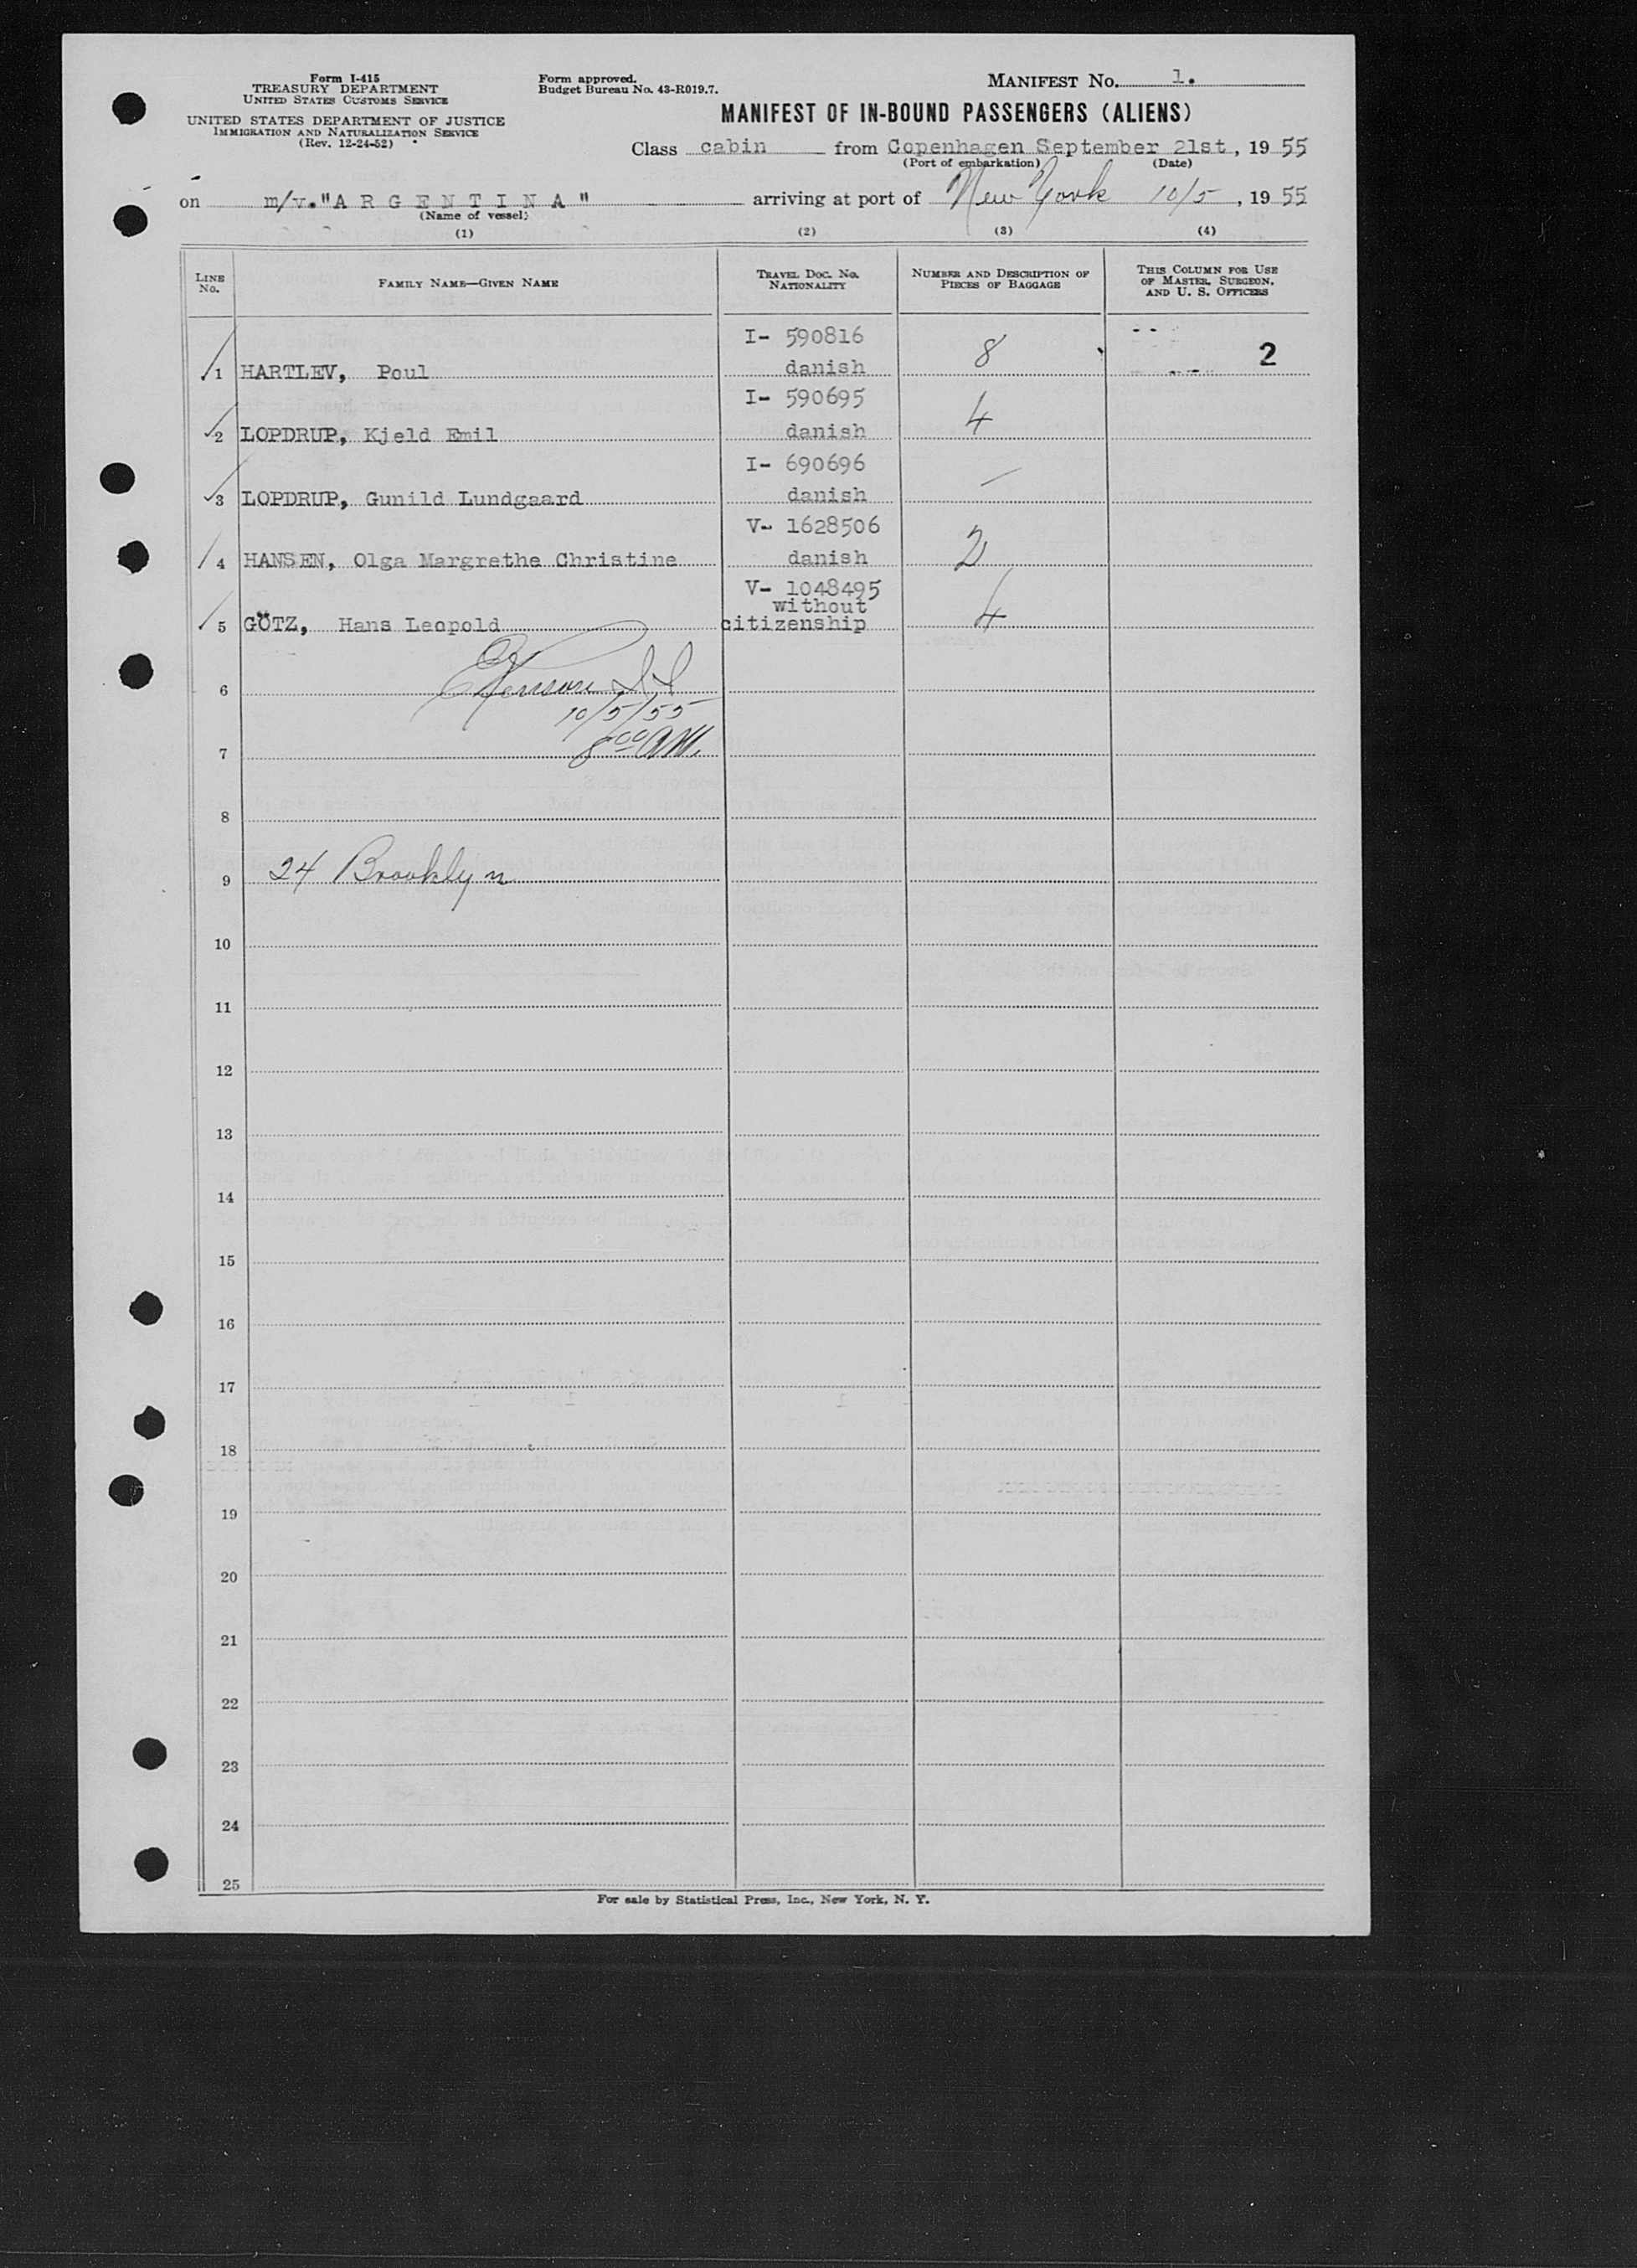 Form I-415
TREASURY DEPARTMENT
UNITED STATES CUSTOMS SERVICE
UNITED STATES DEPARTMENT OF JUSTICE
IMMIGRATION AND NATURALIZATION SERVICE
(Rev. 12-24-52)
Form approved.
Budget Bureau No. 43-R019.7.
MANIFEST No. 1.
MANIFEST OF IN-BOUND PASSENGERS (ALIENS)
Class cabin from Copenhagen September 21st, 1955
(Port of embarkation) (Date)
on m/v."A R G E N T I N A" arriving at port of New York 10/5, 1955
(Name of vessel)
(1) (2) (3) (4)
LINE No. FAMILY NAME—GIVEN NAME TRAVEL DOC. No. NATIONALITY NUMBER AND DESCRIPTION OF PIECES OF BAGGAGE THIS COLUMN FOR USE OF MASTER, SURGEON, AND U. S. OFFICERS
I- 590816
1 HARTLEV, Poul danish 8 2
I- 590695
2 LOPDRUP, Kjeld Emil danish 4
I- 690696
3 LOPDRUP, Gunild Lundgaard danish —
V- 1628506
4 HANSEN, Olga Margrethe Christine danish 2
V- 1048495
without
5 GÖTZ, Hans Leopold citizenship 4
6
10/5/55
7 8 00 AM.
8
9 24 Brooklyn
10
11
12
13
14
15
16
17
18
19
20
21
22
23
24
25
For sale by Statistical Press, Inc., New York, N. Y.